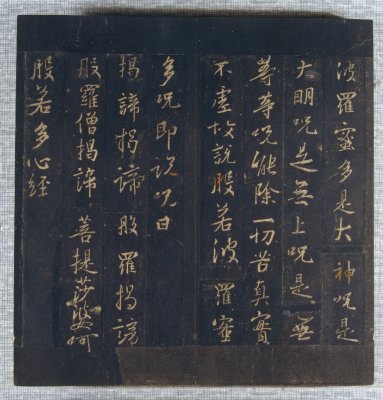 波羅蜜多是大神咒是
大明咒是無上咒是無
等等咒能除一切苦真實
不虛故說般若波羅蜜
多咒即說咒曰
揭諦揭諦般羅揭諦
般羅僧揭諦菩提莎婆呵
般若多心經